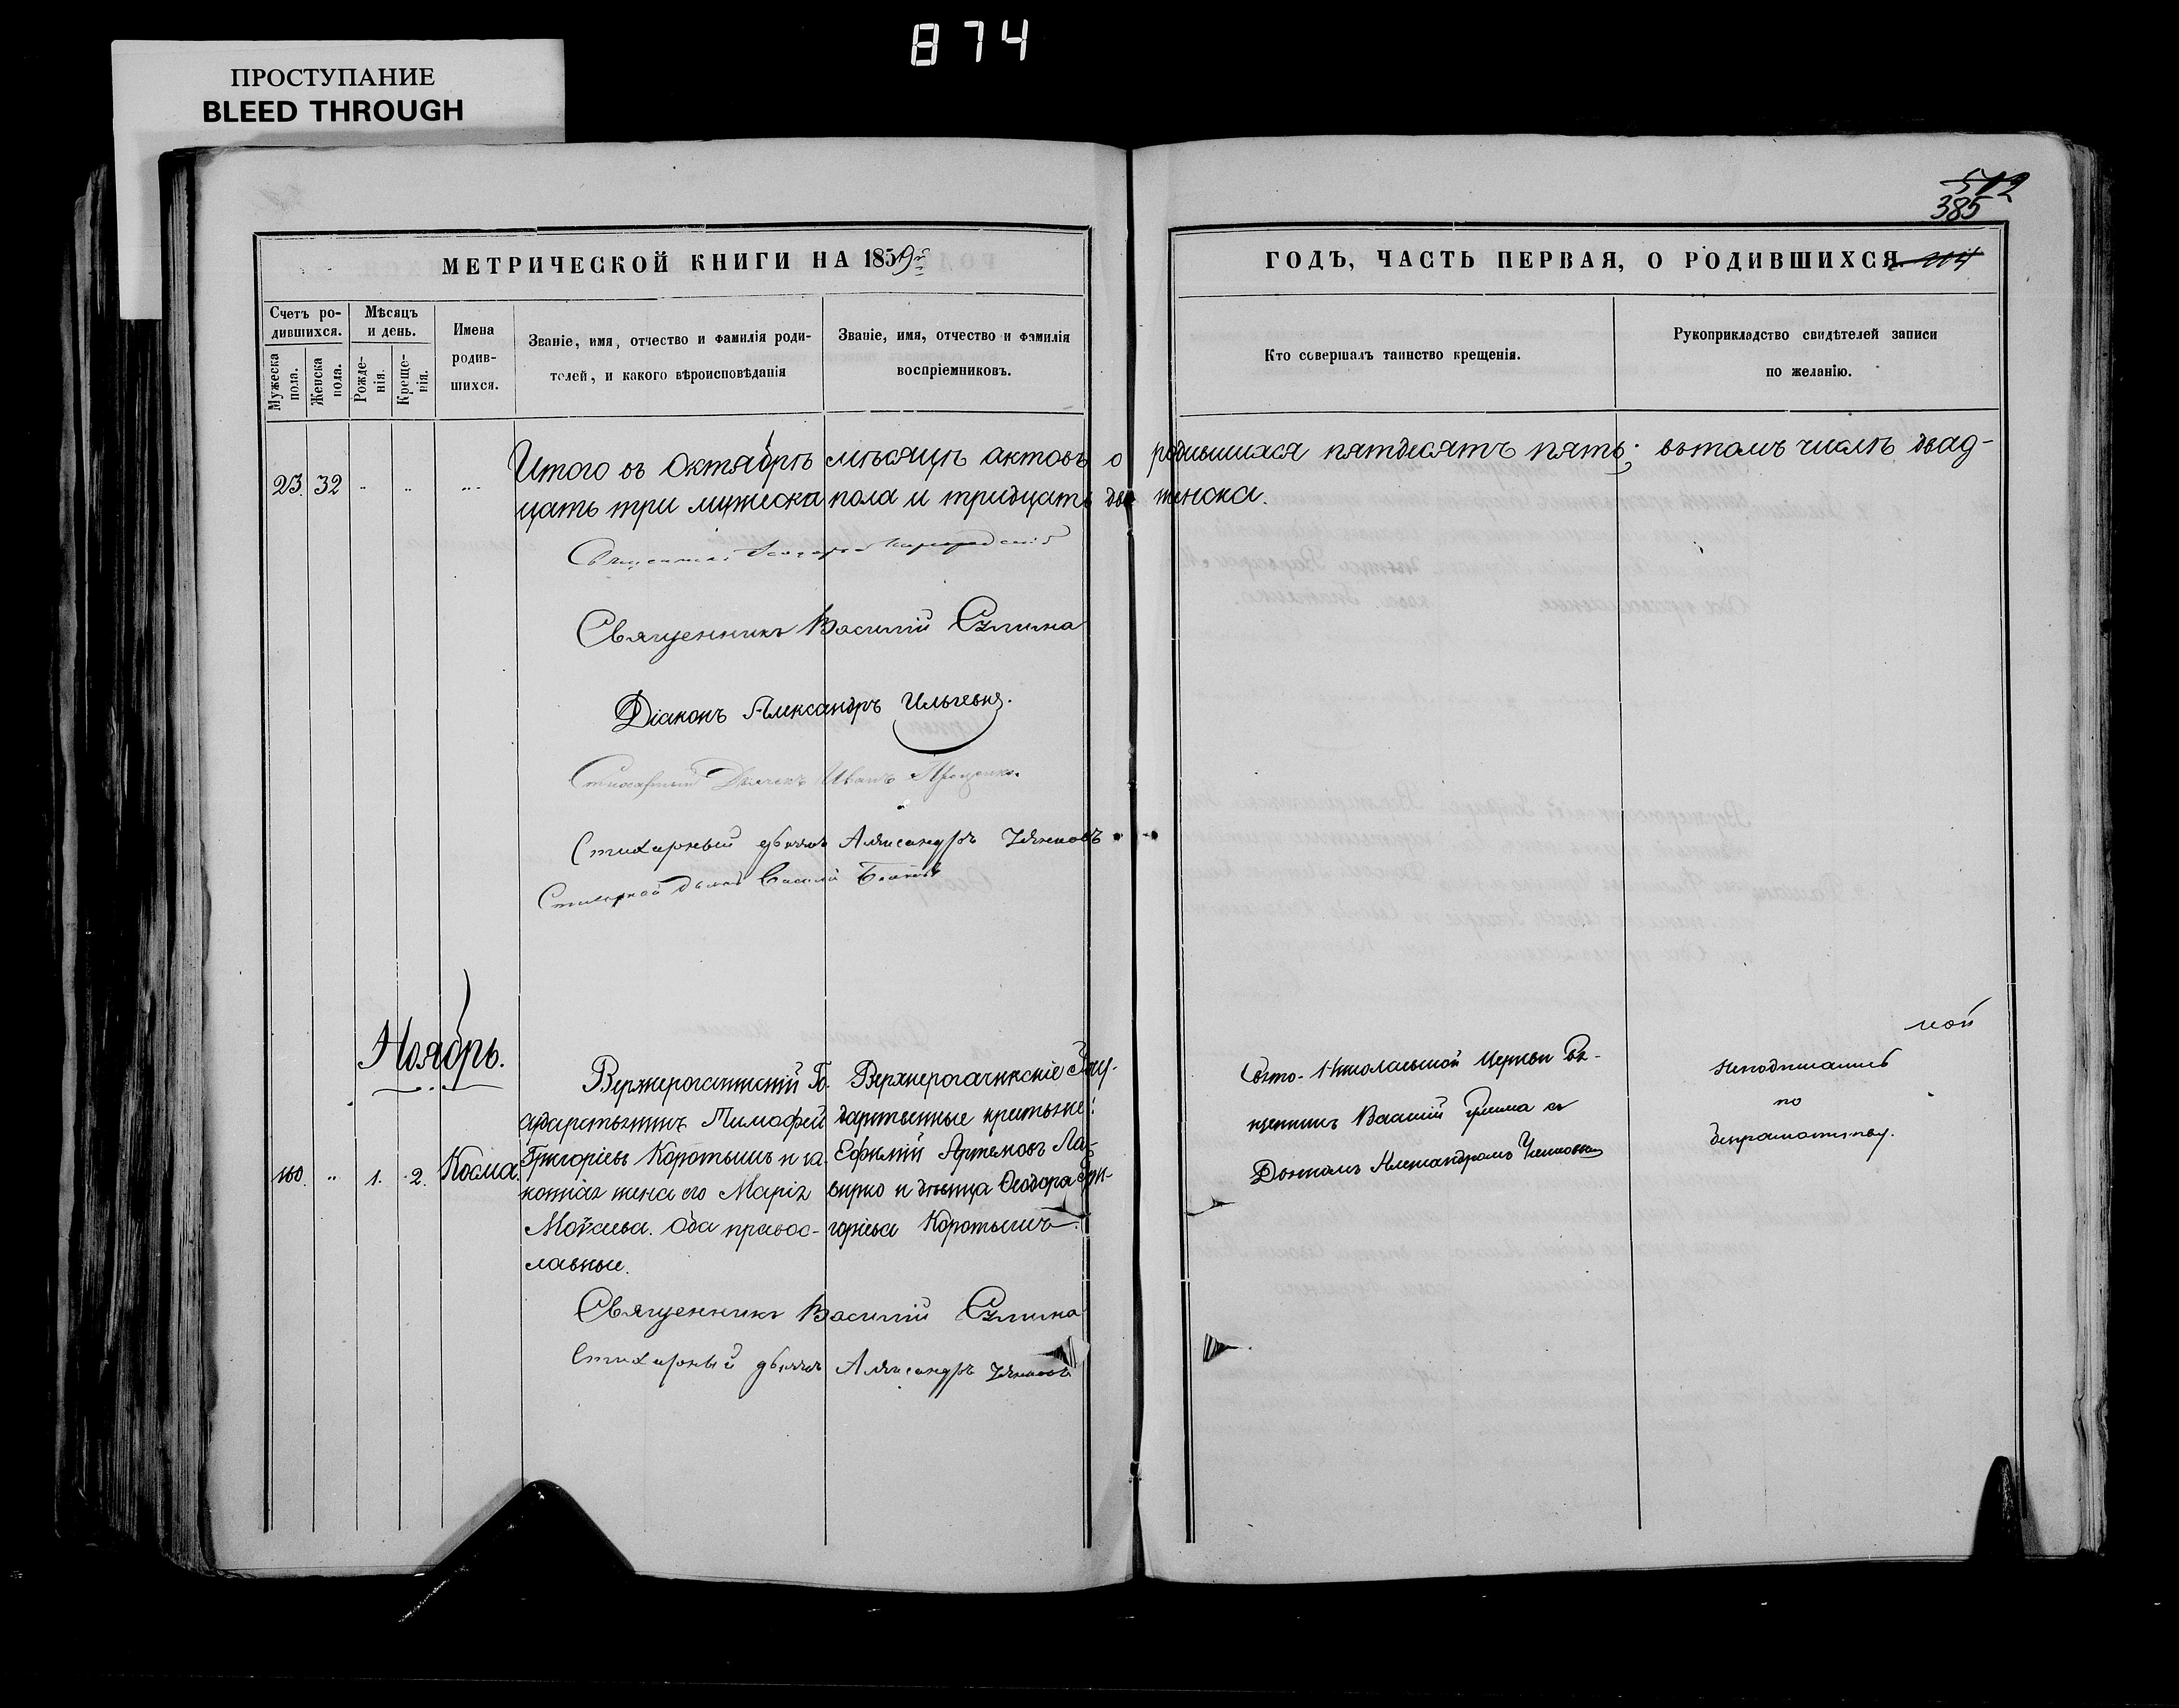 874
ПРОСТУПАНИЕ
BLEED THROUGH
МЕТРИЧЕСКОЙ КНИГИ НА 1859й
Счетъ ро-
дившихся.
Мужеска
пола.
Женска
пола.
Мѣсяцъ
и день.
Рожде-
нія.
Креще-
нія.
Имена
родив-
шихся.
Званіе, имя, отчество и фамилія роди-
телей, и какого вѣроисповѣданія
Званіе, имя, отчество и фамилія
воспріемниковъ.
512
385
ГОДЪ, ЧАСТЬ ПЕРВАЯ, О РОДИВШИХСЯ.
Кто совершалъ таинство крещенія.
Рукоприкладство свидѣтелей записи
по желанію.
Итого въ Октябрѣ мѣсяцѣ актовъ о родившихся пятдесятъ пять; въ томъ числѣ двад-
23. 32
цать три мужеска пола и тридцать два женска.
Священникъ
Священникъ Василій
Діаконъ Александръ
Стихарный Дьячекъ Иванъ Проценко
Стихарный дьячекъ Александръ
Стихарной Василій
Ноябрь.
160. 1. 2. Косма.
Верхнерогачикскій Го-
сударственникъ Тимофей
Григорьевъ Коротышъ и за-
конная жена его Марія
Мойсеева. Оба правос-
лавные.
Верхнерогачикскіе Госу-
дарственные крестьяне:
Ефимій Артемовъ Ла-
врико и дѣвица Ѳеодора Гри-
горьева Коротышъ.
Свято-Николаевской Церкви Св-
ященникъ Василій съ
Дьячкомъ Александромъ
Неподписались
по
безграмотству.
Священникъ Василій
Стихарный дьячекъ Александръ